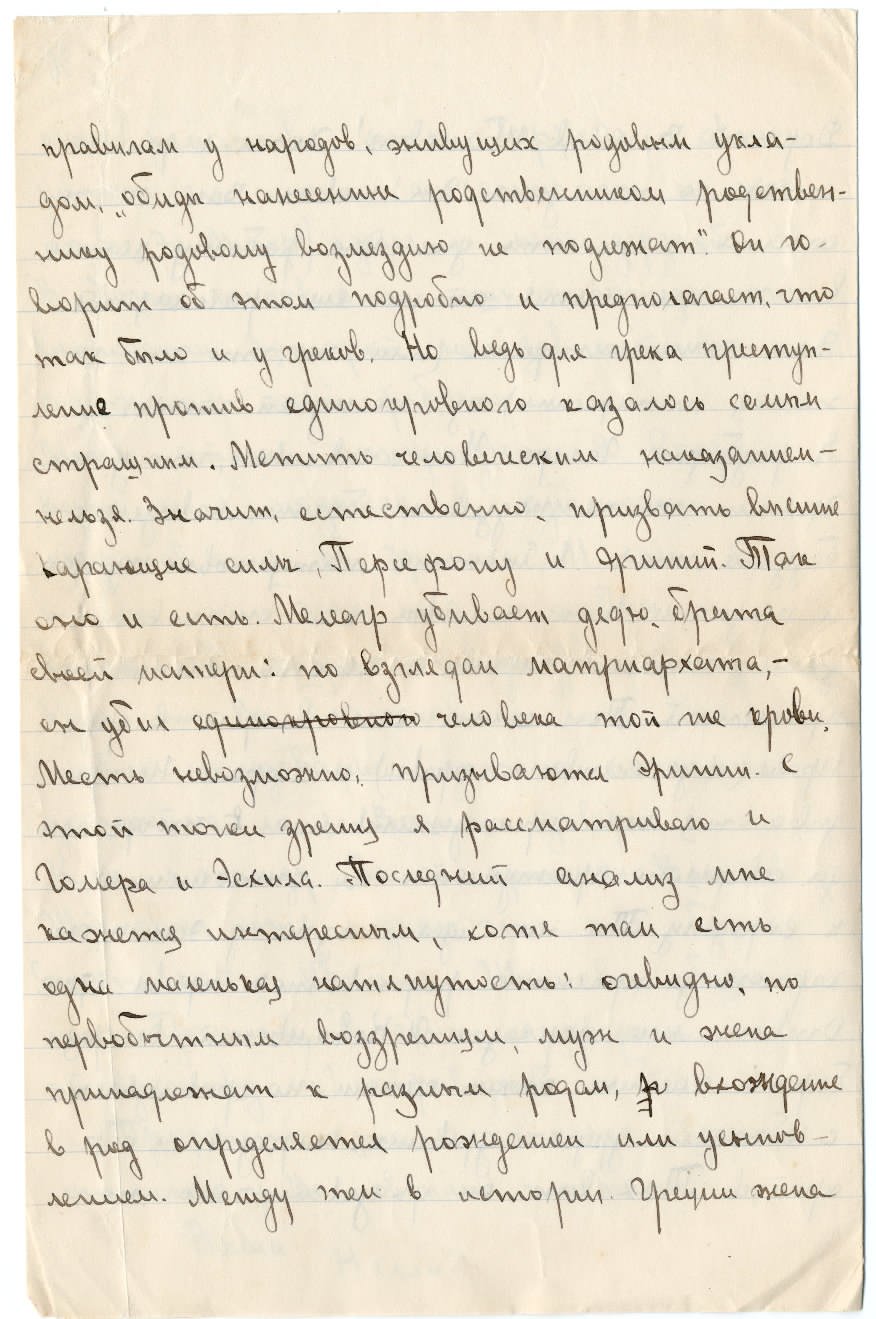 правилам у народов, живущих родовым укла-
дом, „обиды нанесенные родственником родствен-
нику родовому возмездию не подлежат". Он го-
ворит об этом подробно и предполагает, что
так было и у греков. Но ведь для грека преступ-
ление против единокровного казалось самым
страшным. Метить человеческим наказанием –
нельзя. Значит, естественно, призвать высшие
карающие силы, Персефону и Эриний. Так
оно и есть. Мелеагр убивает дядю, брата
своей матери: по взглядам матриархата, –
он убил единокровного человека той же крови.
Месть невозможна, призываются Эринии. С
этой точки зрения я рассматриваю и
Гомера и Эсхила. Последний анализ мне
кажется интересным, хотя там есть
одна маленькая натянутость: очевидно, по
первобытным воззрениям, муж и жена
принадлежат к разным родам, вхождение
в род определяется рождением или усынов-
лением. Между тем в истории Греции жена